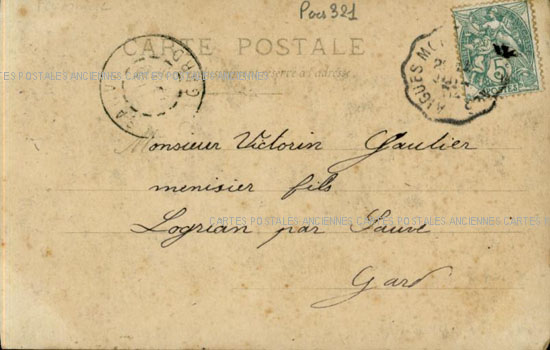 Pocs 321
CARTE POSTALE
réservé à l'adresse
AIGUES MO
5
POSTES
GARD
CARTES POSTALES ANCIENNES CARTES POSTALES ANCIENNES CARTES POSTALES ANCIENNES
Monsieur Victorin Gaulier
menisier fils
CARTES POSTALES ANCIENNES CARTES POSTALES ANCIENNES
Logrian par Sauve
Gard